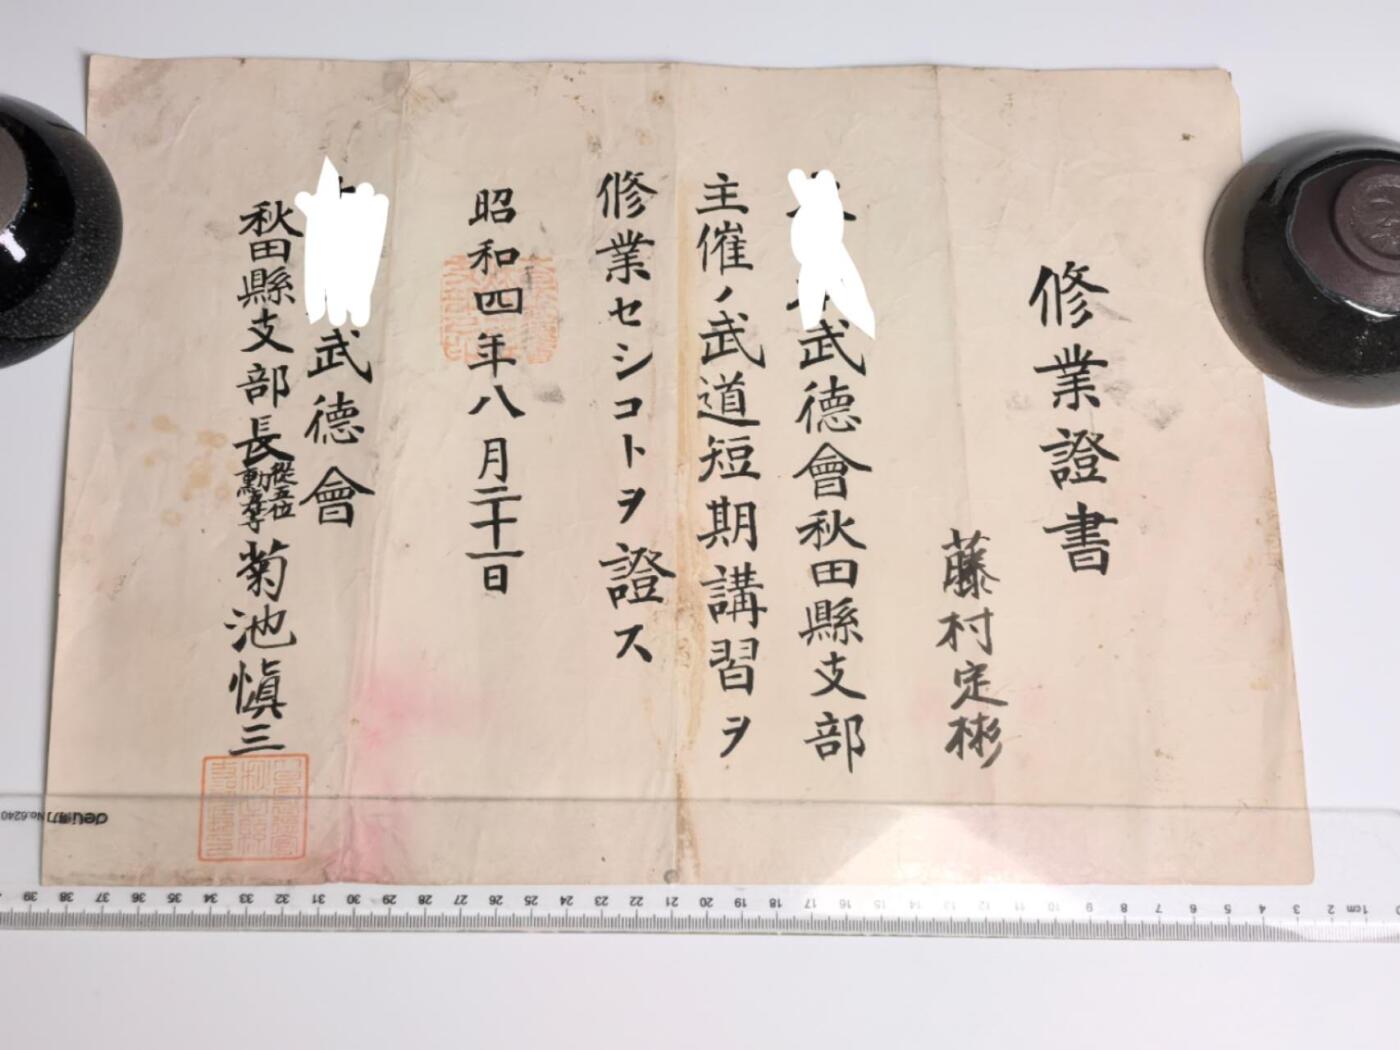 修業證書
藤村定彬
武德會秋田縣支部
主催ノ武道短期講習ヲ
修業セシコトヲ證ス
昭和四年八月二十一日
武德會
秋田縣支部長從五位勳五等菊池愼三
deli得力 No.6240
1cm 2 3 4 5 6 7 8 9 10 11 12 13 14 15 16 17 18 19 20 21 22 23 24 25 26 27 28 29 30 31 32 33 34 35 36 37 38 39